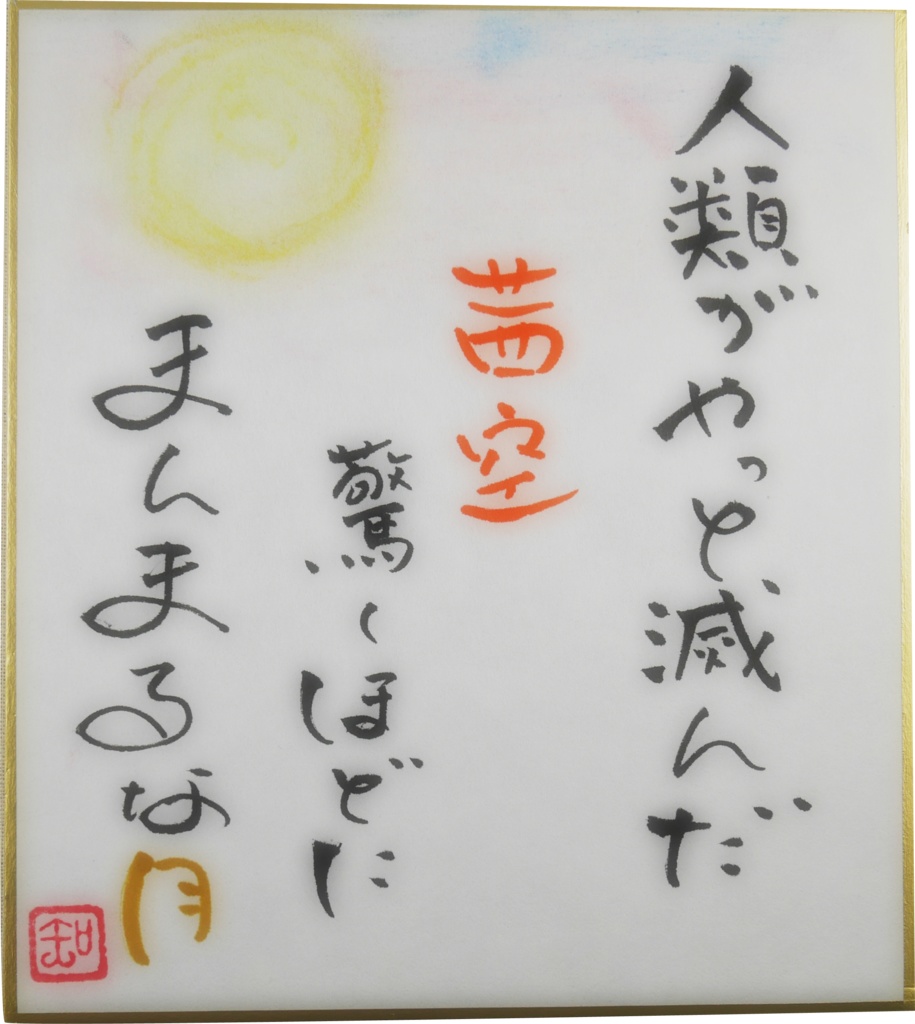 人類がやっと滅んだ
茜空
驚くほどに
まんまるな月
知